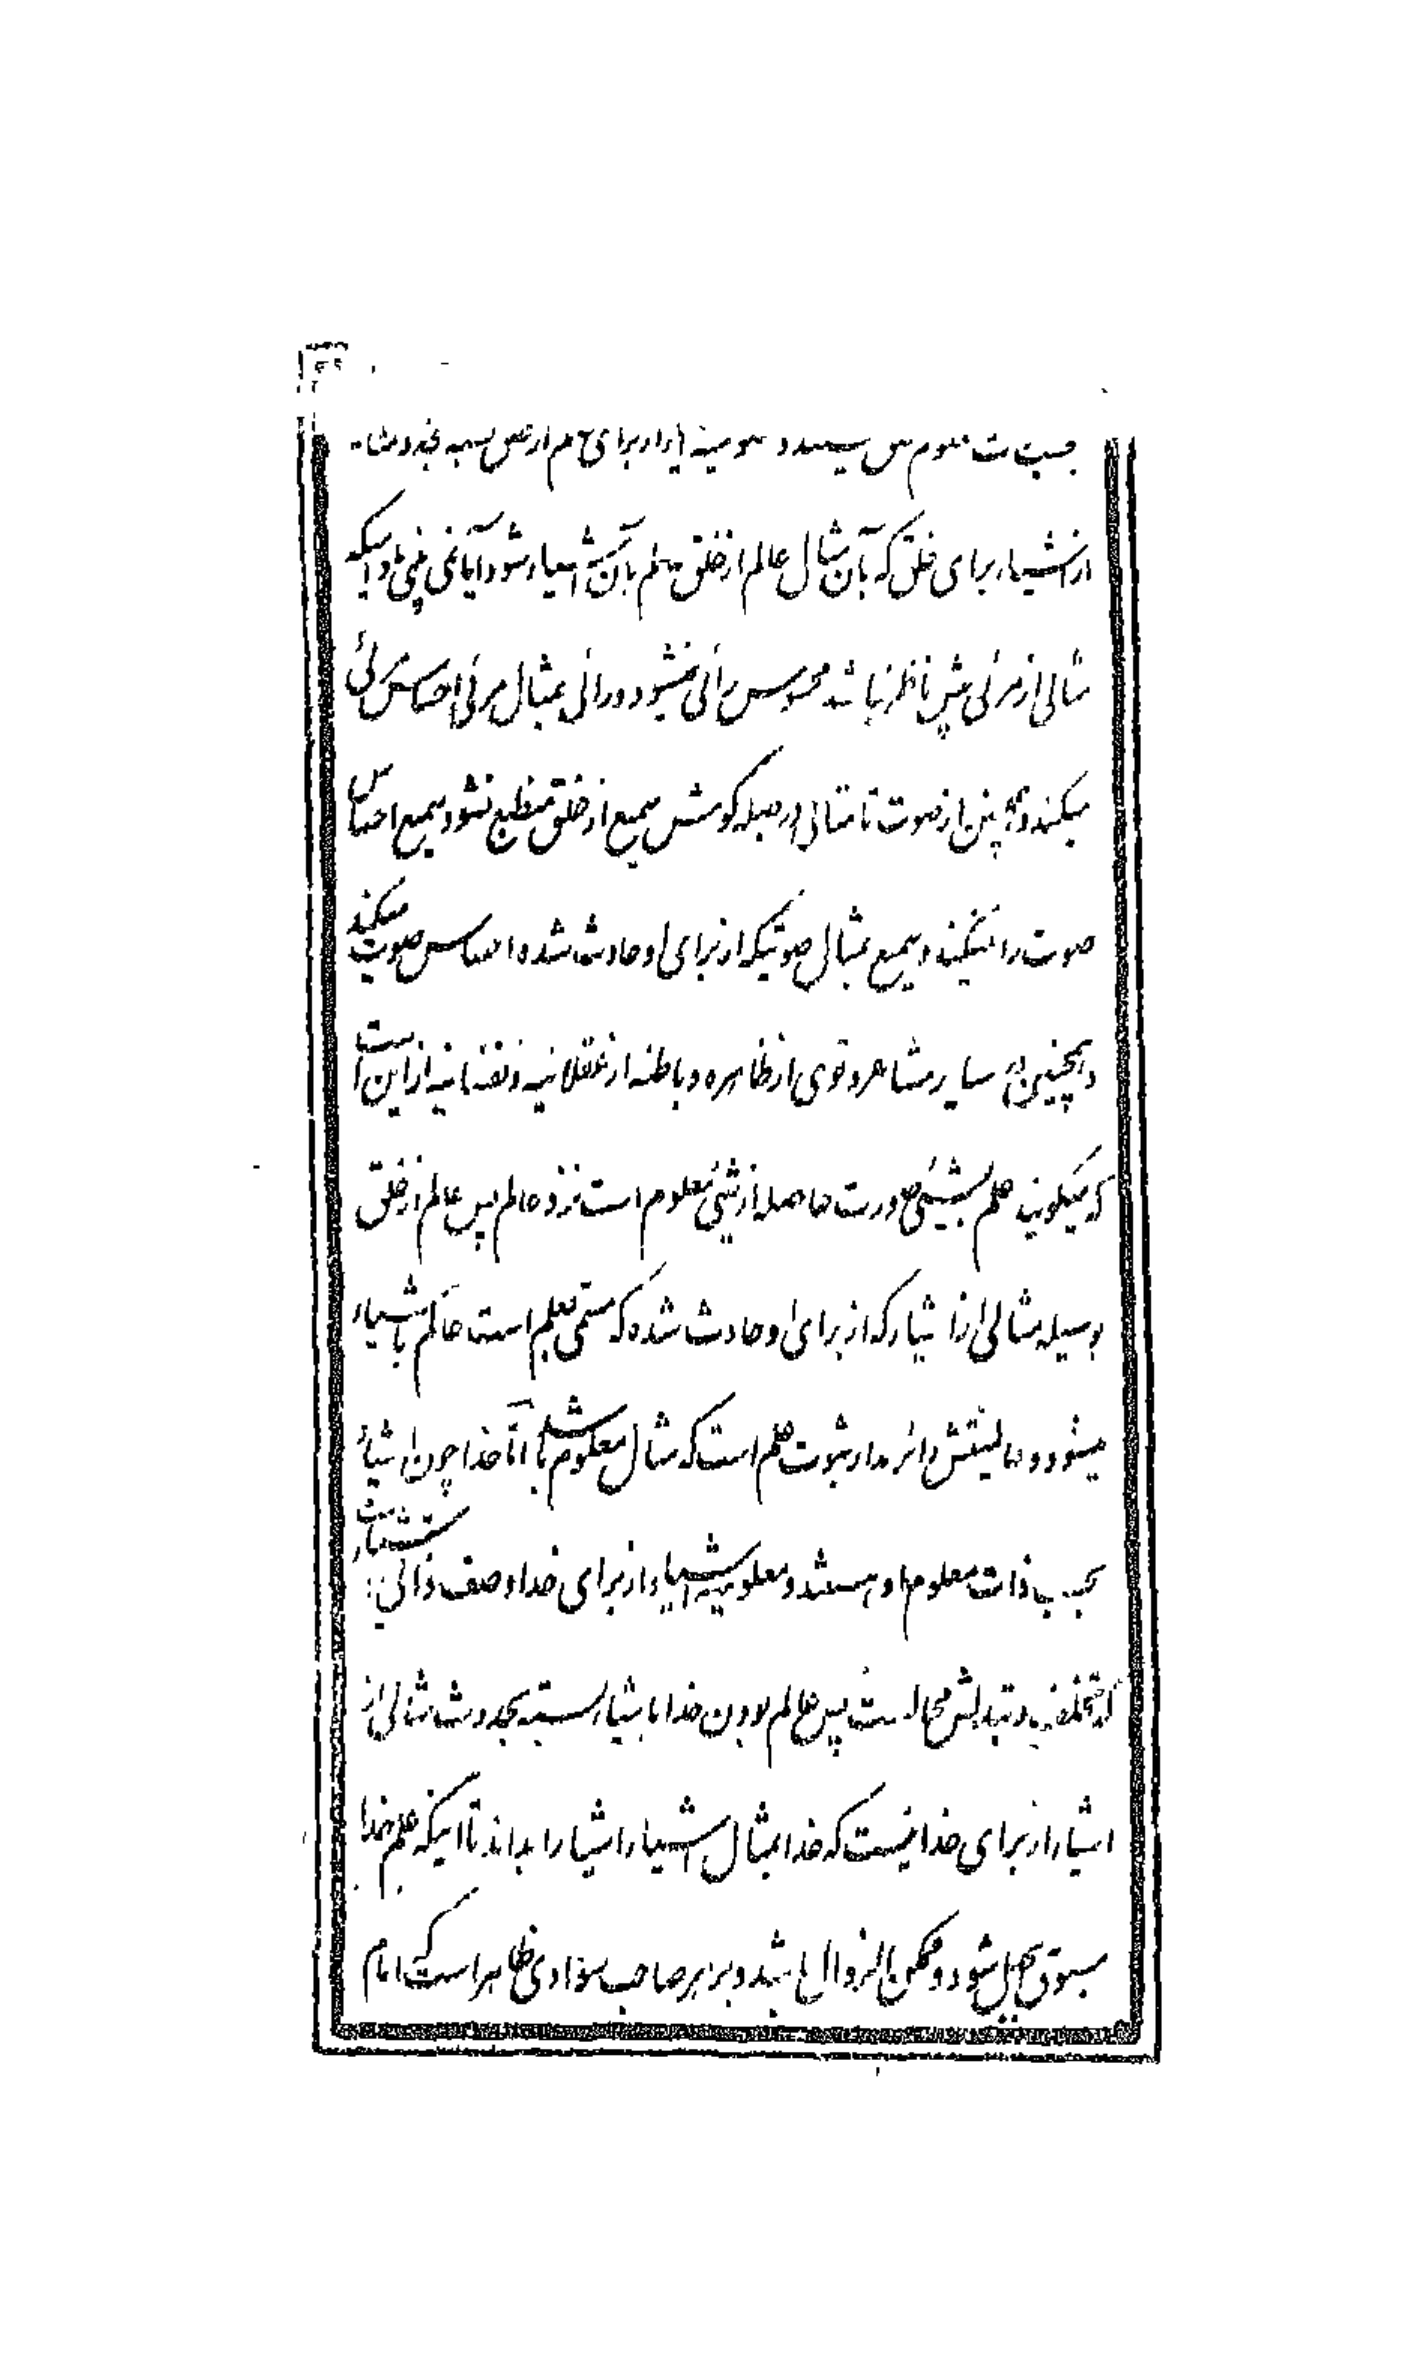 معلوم نیستند و معلومیة اشیاء از برای عالم از خلق بسته بحدوث مثالی
از اشیاء برای خلق که بآن مثال عالم از خلق عالم بآن اشیاء شود آیا نمی بینی مادامیکه
مثالی از مرئی پیش ناظر نباشد محسوس رائی نمیشود و رائی بمثال مرئی احساس مرئی
میکند و همچنین از صوت تا مثالی در صبله کوش سمیع از خلق منطبع نشود سمیع احساس
صوت را نمیکند و سمیع بمثال صوتیکه از برای او حادث شده احساس صوت میکند
و همچنین در سایر مشاعر و قوی از ظاهره و باطنه از عقلانیه و نفسانیه از این است
که میگویند علم بشیئی صورت حاصله از شیئی معلوم است نزد عالم پس عالم از خلق
بوسیله مثالی از اشیاء که از برای او حادث شده که مسمی بعلم است حاکم باشیاء
میشود و عالمیتش دائر مدار ثبوت علم است که مثال معلوم باشد امّا خدا چون اشیاء
بحسب ذات معلوم او هستند و معلومیة اشیاء از برای خدا وصف ذاتی اشیاء است
که تخلف و تبدلش محال است پس عالم بودن خدا باشیاء بسته بحدوث مثالی از
اشیاء از برای خدا نیست که خدا بمثال اشیاء اشیاء را بداند تا اینکه علم خدا
مسبوق بجهل شود و ممکن الزوال باشد و بر هر صاحب سوادی ظاهر است که امام